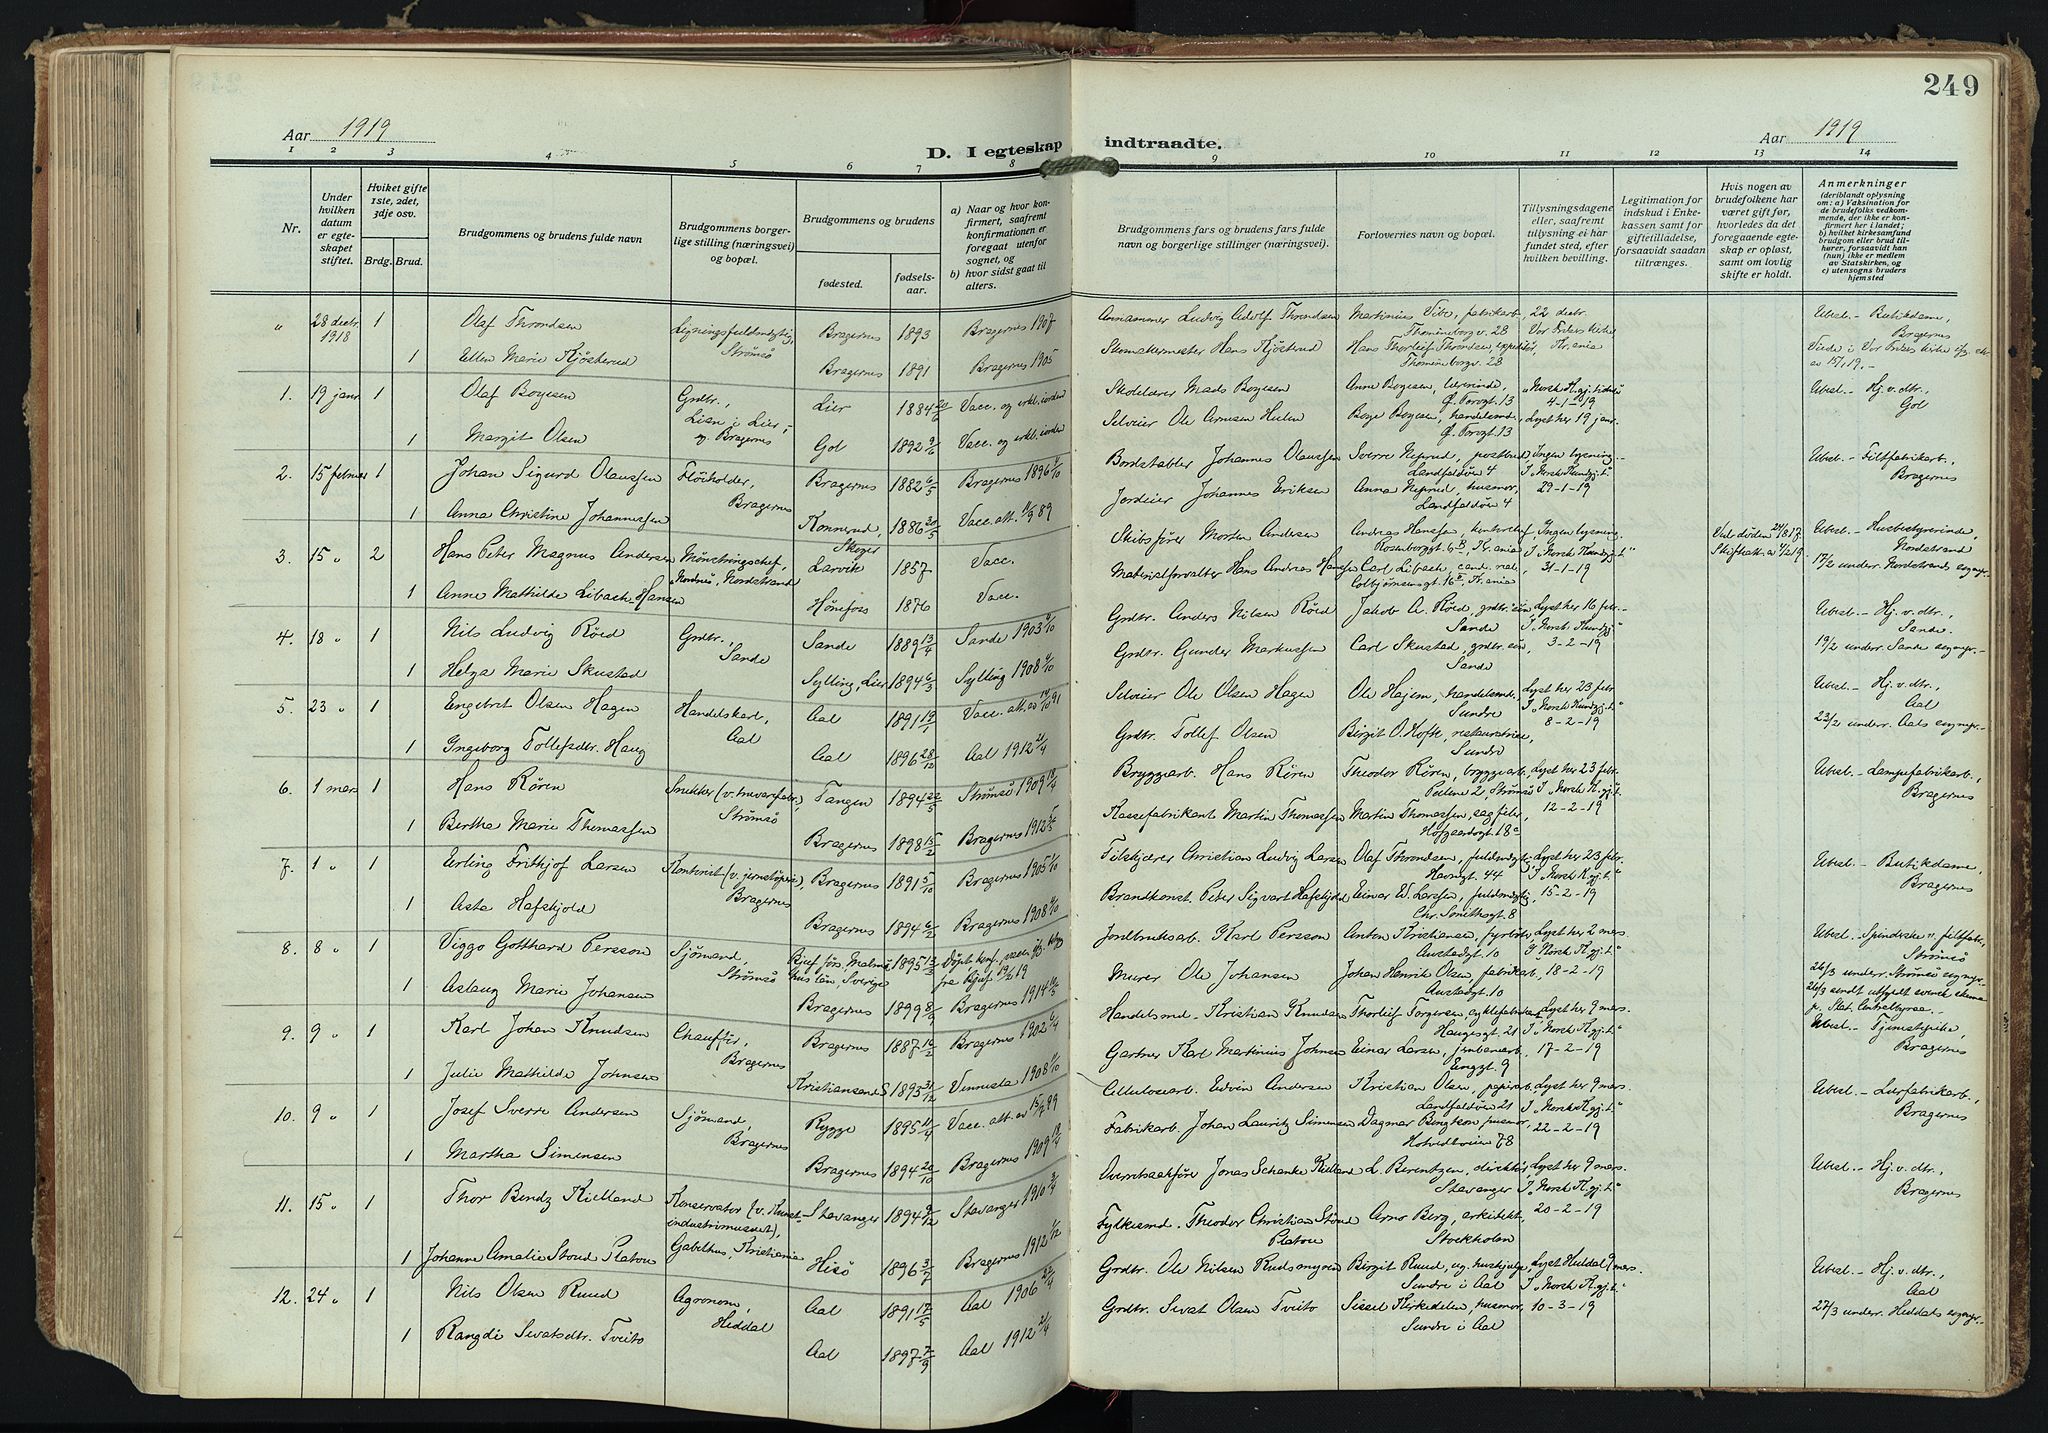 249
Aar 1919
D. I egteskap indtraadte.
Aar 1919
1 2 3 4 5 6 7 8 9 10 11 12 13 14
Nr.
Under hvilken datum er egteskapet stiftet.
Hviket gifte 1ste, 2det, 3dje osv.
Brdg. Brud.
Brudgommens og brudens fulde navn
Brudgommens borgerlige stilling (næringsvei) og bopæl.
Brudgommens og brudens
fødested.
fødselsaar.
a) Naar og hvor konfirmert, saafremt konfirmationen er foregaat utenfor sognet, og
b) hvor sidst gaat til alters.
Brudgommens fars og brudens fars fulde navn og borgerlige stillinger (næringsvei).
Forlovernes navn og bopæl.
Tillysningsdagene eller, saafremt tillysning ei har fundet sted, efter hvilken bevilling.
Legitimation for indskud i Enkekassen samt for giftetilladelse, forsaavidt saadan tiltrænges.
Hvis nogen av brudefolkene har været gift før, hvorledes da det foregaaende egteskap er opløst, samt om lovlig skifte er holdt.
Anmerkninger (deriblandt oplysning om: a) Vaksination for de brudefolks vedkommende, der ikke er konfirmert her i landet; b) hvilket kirkesamfund brudgom eller brud tilhører, forsaavidt han (hun) ikke er medlem av Statskirken, og c) utensogns bruders hjemsted
" 28 decbr. 1918 1 Olaf Throndsen Ligningsfuldmægtig, Strømsø Bragernes 1893 Bragernes 1907 Ludvig Adolf Throndsen Martinius Vibe, fabrikarb. Thornøenborgv. 28 22 decbr. Vor Frelsers kirke Kr.ania Ubesl. - Butikdame, Bragernes
1 Ellen Marie Kjøsterud Bragernes 1891 Bragernes 1905 Skomakermester Hans Kjøsterud Hans Thorleif Throndsen, 28
1. 19 janr. 1 Olaf Bogesen Grdbr., Lien i Lier, Bragernes Lier 1884 20/6 Vacc. og Skolelærer Mads Bogesen Anne Bogesen, lærerinde, Ø. Torvgt. 13 "Norsk K.gj.tidende" 4-1-19 Ubesl. - Hj. v. dtr., Gol
1 Margit Olsen Gol 1892 9/6 Vacc. og Selveier Ole Arnesen Hulen Boye Bogesen, handelsmd., Ø. Torvgt. 13 Lyst her 19 janr.
2. 15 februar 1 Johan Sigurd Olaussen Fløiholder, Bragernes Bragernes 1882 6/5 Bragernes 1896 4/10 Bordstabler Johannes Olaussen Sverre Neprud, postbud Landfaldøen 4 Ingen lysning. - I "Norsk Kundgj.t." 29-1-19 Ubesl. - Filtfabrikarb., Bragernes
1 Anna Christine Johannessen Konnerud, Skoger 1886 30/5 Vacc. att. 11/9 89 Jordeier Johannes Eriksen Anna Neprud, husmor, Landfaldøen 4
3. 15 " 2 Hans Peter Magnus Andersen Mønstringschef, "Nordnes", Nordstrand Larvik 1857 Vacc. Skibsfører Morten Andersen Andreas Hansen, Rosenborggt. 6, Kr.ania Ingen lysning. I "Norsk Kundgj.t." 31-1-19 Ved døden 24/8 17. Skifteatt. av 4/2 19. Ubesl. - Husbestyrerinde, Nordstrand
1 Anne Mathilde Libach-Hansen Hønefoss 1876 Vacc. Materialforvalter Hans Andreas Hansen Carl Libach, cand. real. Colbjørnsensgt. 16, Kr.ania 17/2 underr. Nordstrands sognepr. -
4. 18 " 1 Nils Ludvig Røed Grdbr., Sande Sande 1889 13/4 Sande 1903 4/10 Grdbr. Anders Nilsen Røed Jakob A. Røed, grdbr.søn, Sande Lyst her 16 febr. - I "Norsk Kundgj.t." 3-2-19 Ubesl. - Hj. v. dtr., Sande.
1 Helga Marie Skustad Sylling, Lier 1894 6/3 Sylling 1908 4/10 Grdbr. Gunder Markussen Carl Skustad, grdbr.søn, Sande 19/2 underr. Sande sognepr. -
5. 23 " 1 Engebret Olsen Hagen Handelskarl, Aal Aal 1891 19/1 Vacc. att. av 14/10 91 Selveier Ole Olsen Hagen Ole Hajem, handelsmd. Sundre Lyst her 23 febr. I "Norsk Kundgj.t." 8-2-19 Ubesl. - Hj. v. dtr., Aal
1 Ingeborg Tollefsdtr. Haug Aal 1896 28/12 Aal 1912 21/4 Grdbr. Tollef Olsen Birgit O. Hofte, Sundre 23/2 underr. Aals sognepr. -
6. 1 mars 1 Hans Røren Snekker (v. trevarefabr.), Strømsø Tangen 1894 22/5 Strømsø 1909 18/4 Bryggearb. Hans Røren Theodor Røren, bryggearb. Peilene 2, Strømsø Lyst her 23 febr. I "Norsk K.gj.t." 12-2-19 Ubesl. - Lampefabrikarb., Bragernes
1 Bertha Marie Thomassen Bragernes 1898 15/2 Bragernes 1912 Kassefabrikant Martin Thomassen Martin Thomassen, sagfiler, Hofgaardsgt. 18
7. 1 " 1 Erling Frithjof Larsen Kontorist (v. jernstøperi), Bragernes Bragernes 1891 5/10 Bragernes 1905 1/10 Tilskjærer Christian Ludvig Larsen Olaf Throndsen, fuldmægtig Havnegt. 44 Lyst her 23 febr. I "Norsk K.gj.t." 15-2-19 Ubesl. - Butikdame, Bragernes
1 Asta Hafskjold Bragernes 1894 6/2 Bragernes 1908 4/10 Brandkonst. Peter Sigvart Hafskjold Einar Ed. Larsen, fuldmægtig, Chr. Smithsgt. 8
8. 8 " 1 Viggo Gotthard Persson Sjømand, Strømsø Bjuf förs., Malmöhus län, Sverige 1895 13/2 Døpt, konf., vacc. fra Bjuf 19/2 19 Jordbruksarb. Karl Persson Anton Kristiansen, fyrbøter Austadgt. 10 Lyst her 2 mars. I "Norsk K.gj.t." 18-2-19 Ubesl. - Spinderske v. filtfabr., Strømsø
1 Aslaug Marie Johansen Bragernes 1899 8/9 Bragernes 1914 Murer Ole Johansen Johan Henrik Olsen, fabrikarb. Austadgt. 10 26/3 underr. Strømsø sognepr. - 26/3 sendt utfyldt svensk skema p. Stat. Centralbyraa. -
9. 9 " 1 Karl Johan Knudsen Chauffør, Bragernes Bragernes 1887 16/2 Bragernes 1902 6/4 Handelsmd. Kristian Knudsen Thorleif Torgersen, cyklefabrikant Haugesgt. 21 Lyst her 9 mars. I "Norsk K.gj.t." 17-2-19 Ubesl. - Tjenestepike, Bragernes
1 Julie Mathilde Johnsen Kristiansand S 1893 31/12 Vennesla 1908 11/10 Gartner Karl Martinius Johnsen Einar Larsen, jernbanearb. Enggt. 9
10. 9 " 1 Josef Sverre Andersen Sjømand, Bragernes Rygge 1895 11/4 Vacc. att. av 15/7 99 Cellulosearb. Edvin Andersen Kristian Olsen, papirarb. Landfaldøen 21 Lyst her 9 mars. I "Norsk K.gj.t." 22-2-19 Ubesl. - Lærfabrikarb., Bragernes
1 Martha Simensen Bragernes 1894 20/10 Bragernes 1909 18/4 Fabrikarb. Johan Lauritz Simensen Dagmar husmor Hotvedtveien 78
11. 15 " 1 Thor Bendz Kielland Konservator (v. Kunstindustrimuseet), Gabelhus, Kristiania Stavanger 1894 9/12 Stavanger 1910 3/4 Overretssakfører Jonas Schanke Kielland L. Berentzen, direktør, Stavanger Lyst her 9 mars. I "Norsk K.gj.t." 20-2-19 Ubesl. - Hj. v. dtr., Bragernes
1 Johanne Amalie Stoud Platou Hisø 1896 3/7 Bragernes 1912 1/12 Fylkesmd. Theodor Christian Stoud Platou Arno Berg, arkitekt, Stockholm
12. 24 " 1 Nils Olsen Ruud Agronom, Heddal Aal 1891 17/5 Aal 1906 22/4 Grdbr. Ole Nilsen Rudsmoen Birgit Ruud, ug. huskjelpe, Sundre i Aal Lyst Heddal 9 mars. I "Norsk K.gj.t." 10-3-19 Ubesl. - Hj. v. dtr., Aal
1 Rangdi Sivatsdtr. Tveito Aal 1897 7/9 Aal 1912 21/4 Grdbr. Sivat Olsen Tveito Sissel Kirkedelen, husmor, Sundre i Aal 27/3 underr. Heddals sognepr. -